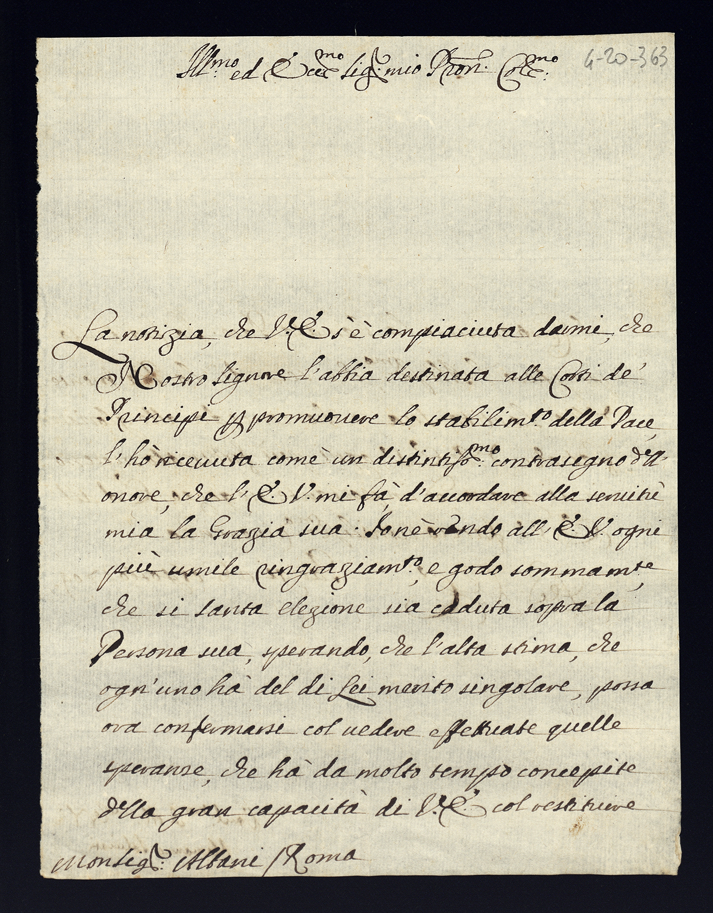 Ill.mo ed Ecc.mo Sig.r mio Pron. Col.mo
4-20-363
La notizia, che V.E. s'è compiaciuta darmi, che
Nostro Signore l'abbia destinata alle Corti de'
Principi p promuovere lo stabilim.to della Pace,
l'hò ricevuta come un distintiss.mo contrasegno dell'
onore, che l'E.V. mi fà d'accordare alla servitù
mia la Grazia sua. Io nè rendo all'E.V. ogni
più umile ringraziam.to, e godo sommam.te,
che si santa elezione sia caduta sopra la
Persona sua, sperando, che l'alta stima, che
ogn'uno hà del di Lei merito singolare, possa
ora confermarsi col vedere effettuate quelle
speranze, che hà da molto tempo concepite
della gran capacità di V.E. col restituire
Monsig.r Albani / Roma